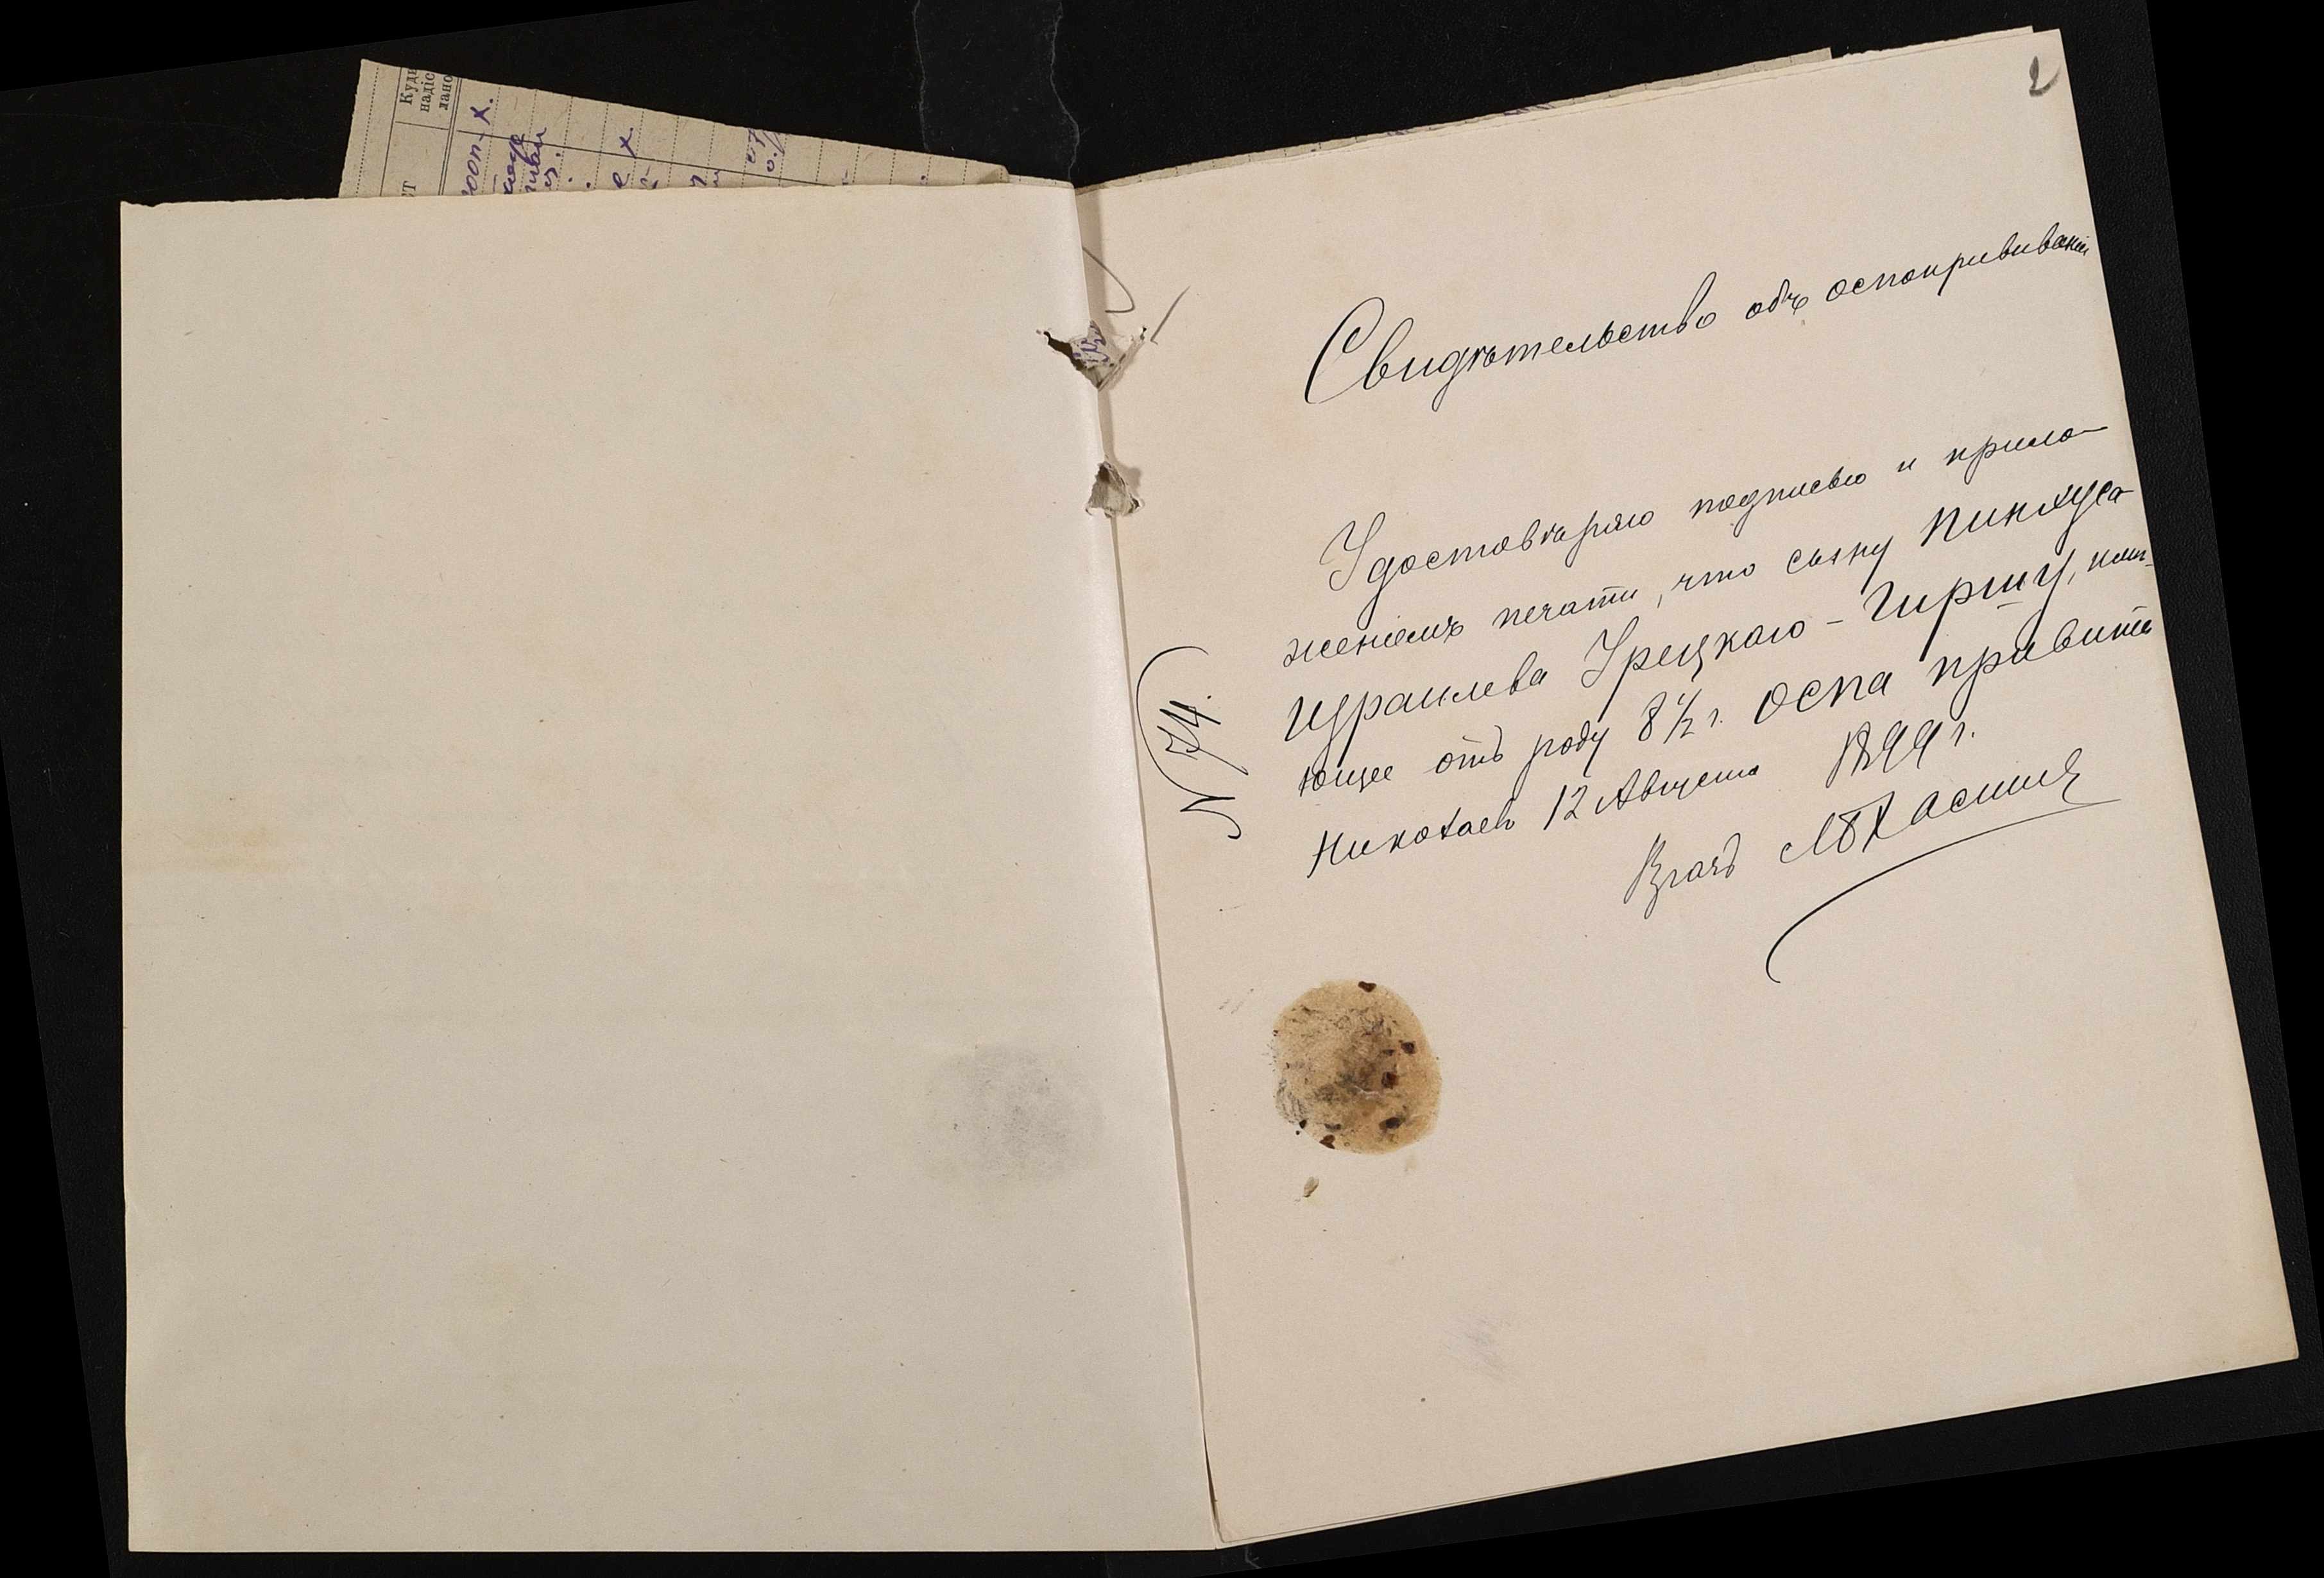 2
Свидѣтельство объ оспопрививаніи
Удостовѣряю подписью и прило-
женіемъ печати, что сыну Пинхуса
Израилева Урецкаго - Гиршу, имѣ-
ющее отъ роду 8 1/2 г. оспа привита
Николаевъ 12 Августа 1899 г.
Врачъ
N 74.
Куди
надіс
лано